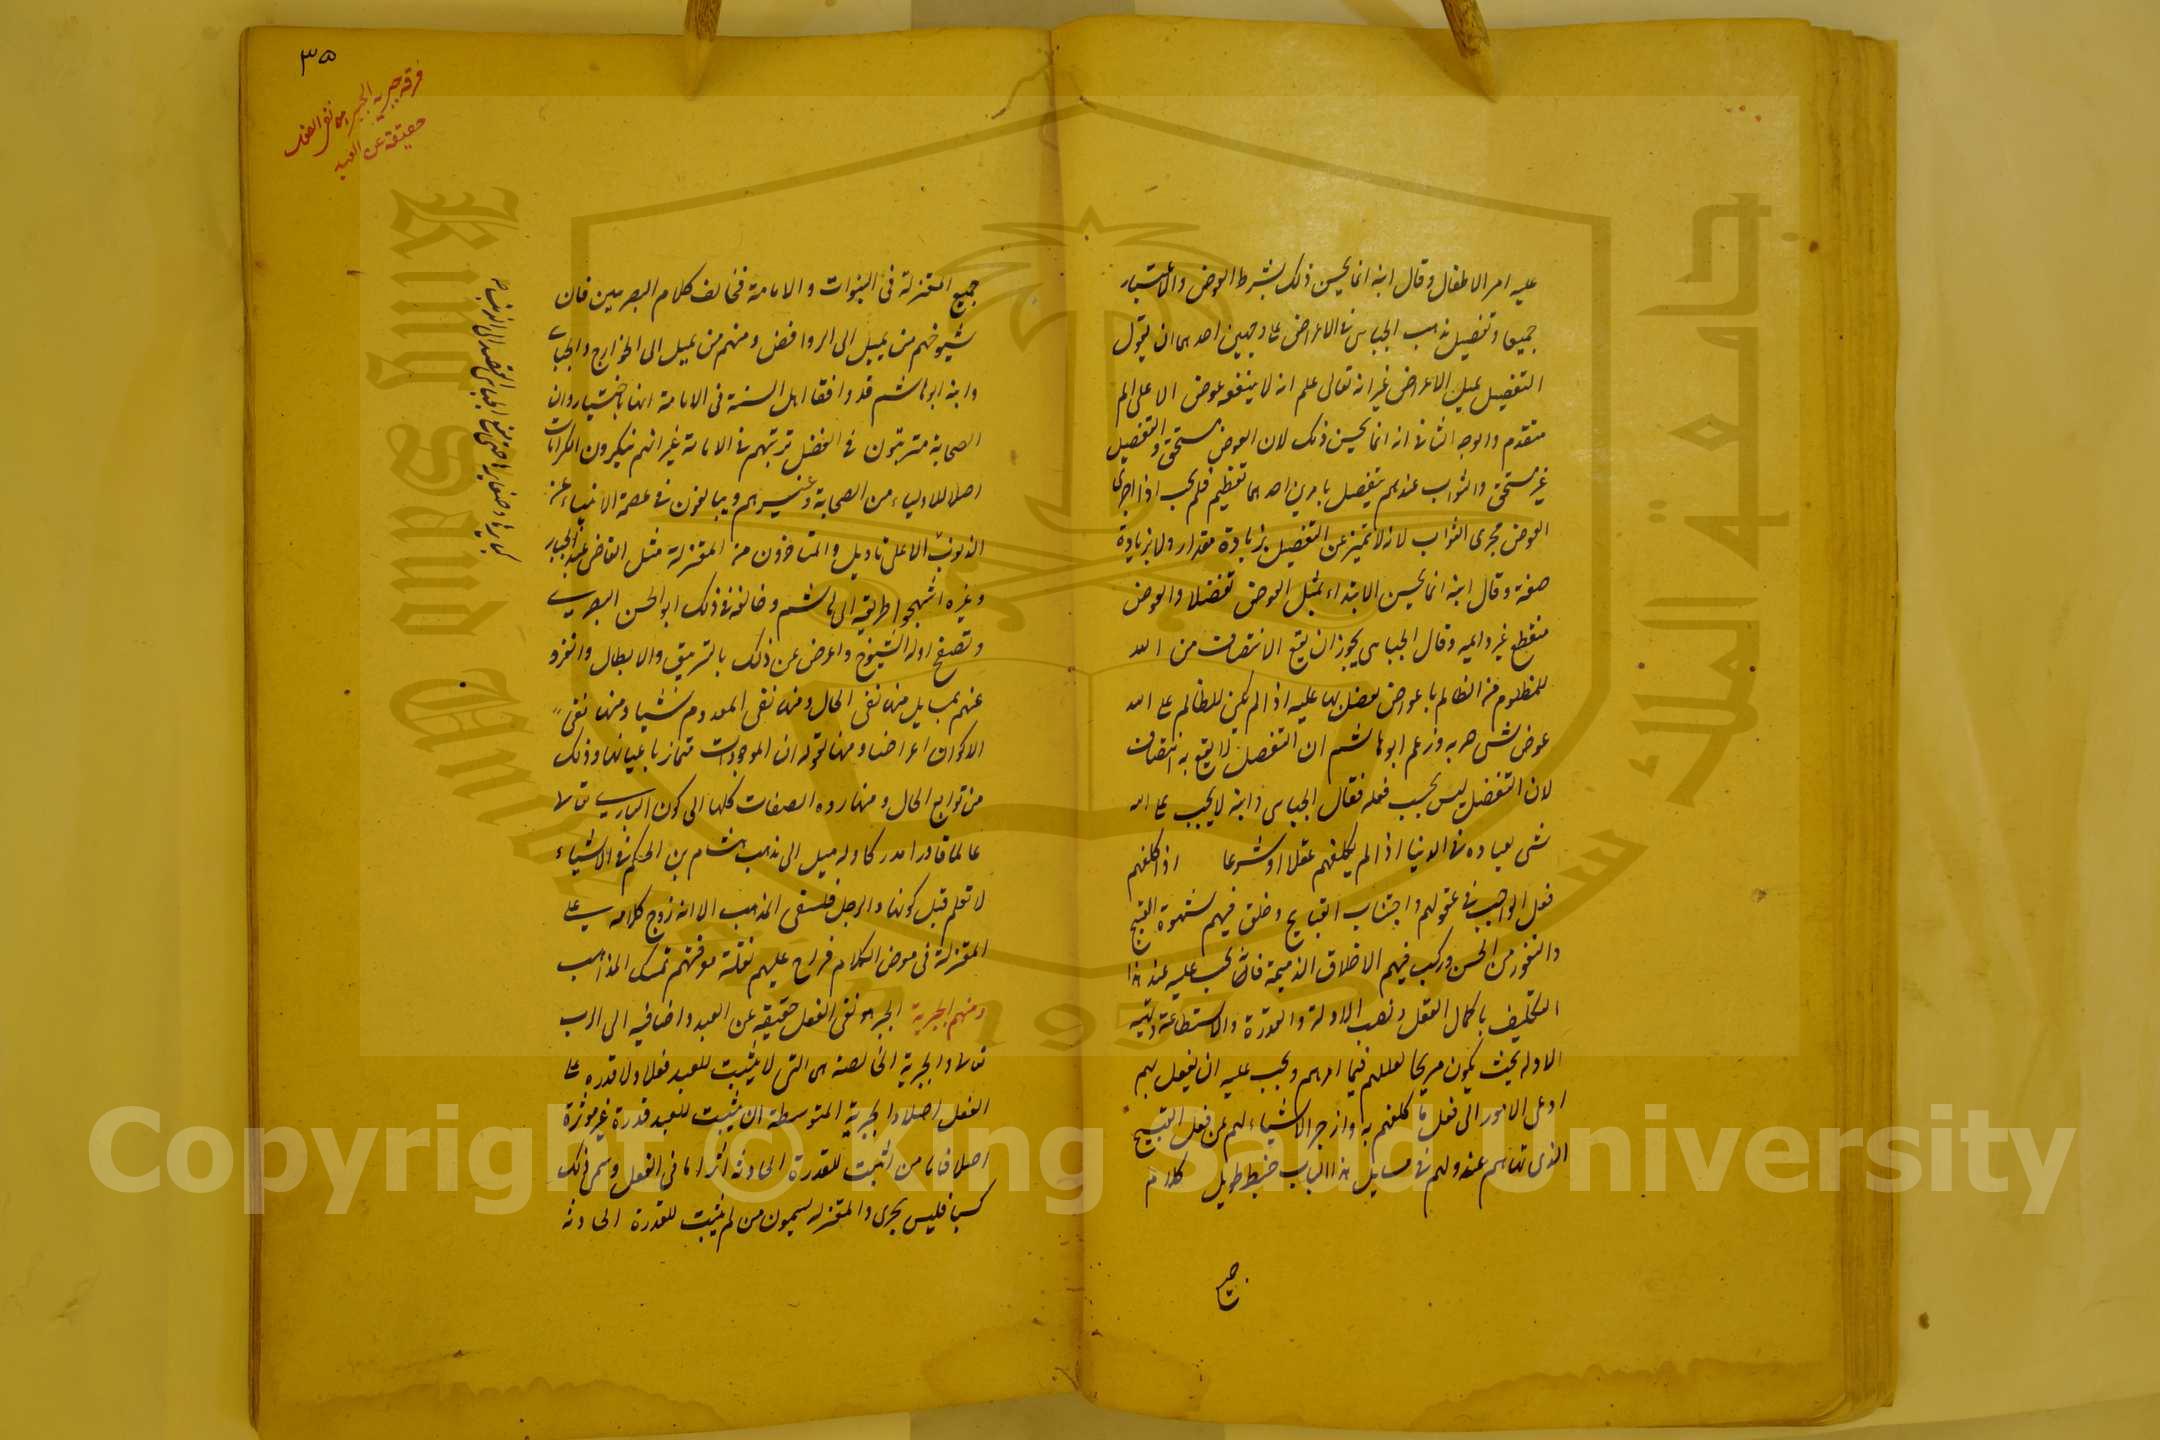 عليه امر الاطفال وقال ابنه انما يحسن ذلك بشرط العوض والاعتبار
جميعا وتفصيل مذهب الجبائى فى الاعواض على وجهين احدهما ان يقول
التفضيل بمثل الاعواض غير انه تعالى علم انه لا ينفعه عوض الا على الم
متقدم والوجه الثانى انه انما يحسن ذلك لان العوض مستحق والتفضيل
غير مستحق والثواب عندهم ينفصل بامرين احدهما تعظيم
العوض مجرى الثواب لانه لا يتميز عن التفضيل بزيادة مقدار ولا بزيادة
صفة وقال ابنه انما يحسن الابتداء بمثل العوض تفضلا والعوض
منقطع غير دايم وقال الجبائى يجوز ان يقع الانتصاف من الله
للمظلوم من الظالم باعواض يفضل بها عليه اذا لم يكن للظالم على الله
عوض لشى ضره به وزعم ابو هاشم ان التفضل لا يقع به انتصاف
لان التفضل ليس يجب فعله فقال الجبائى وابنه لا يجب على الله
شى لعباده فى الدنيا اذا لم يكلفهم عقلا او شرعا اذا كلفهم
فعل الواجب فى عقولهم واجتناب القبايح وخلق فيهم شهوة القبيح
والنفور من الحسن وركب فيهم الاخلاق الذميمة فانه يجب عليه عند هذا
التكليف باكمال العقل ونصب الادلة والقدرة والاستطاعة وتهيه
الاوله بحيث يكون مريحا لعللهم فيما امرهم ويجب عليه ان يفعل بهم
ادعى الامور الى فعل ما كلفهم به وازجر الاشياء لهم عن فعل القبيح
الذى نهاهم عنه ولهم فى مسايل هذا الباب خبط طويل كلام
جميع
٣٥
فرقه جبريه الجبر هو نفى الفعل
حقيقة عن العبد
جميع المعتزلة فى النبوات والامامة فخالف كلام البصريين فان
شيوخهم من يميل الى الروافض ومنهم من يميل الى الخوارج والجبائى
وابنه ابو هاشم قد وافقا اهل السنة فى الامامة انها باختيار وان
الصحابة مترتبون فى الفضل ترتبهم فى الامامة غير انهم ينكرون الكرامات
اصلا للاولياء من الصحابة وغيرهم ويبالغون فى عصمة الانبياء عن
الذنوب الا على تاويل والمتاخرون من المعتزلة مثل القاضى عبد الجبار
وغيره انتهجوا طريقة ابى هاشم وخالفه فى ذلك ابو الحسن البصرى
وتصفح ادلة الشيوخ واعرض عن ذلك بالتزييق والابطال وانفرد
عنهم بمسايل منها نفى الحال ومنها نفى المعدوم شيا ومنها نفى
الاكوان اعراضا ومنها قوله ان الموجودات تتمايز باعيانها وذلك
من توابع الحال ومنها رده الصفات كلها الى كون البارى تعالى
عالما قادرا مدركا وله ميل الى مذهب هشام بن الحكم فى الاشياء
لا تعلم قبل كونها والرجل فلسفى المذهب الا انه زوج كلامه على
المعتزلة فى معرض الكلام فراج عليهم لقلة معرفتهم تمسك المذاهب
ومنهم الجبرية الجبر هو نفى الفعل حقيقة عن العبد واضافته الى الرب
تعالى والجبرية الخالصة هى التى لا يثبت للعبد فعلا ولا قدرة على
الفعل اصلا والجبرية المتوسطة ان يثبت للعبد قدرة غير موثرة
اصلا فاما من اثبت للقدرة الحادثة اثرا ما فى الفعل وسمى ذلك
كسبا فليس بجبرى والمعتزلة يسمون من لم يثبت للقدرة الحادثة
Copyright © King Saud University
King Saud University
جامعة الملك سعود
1957